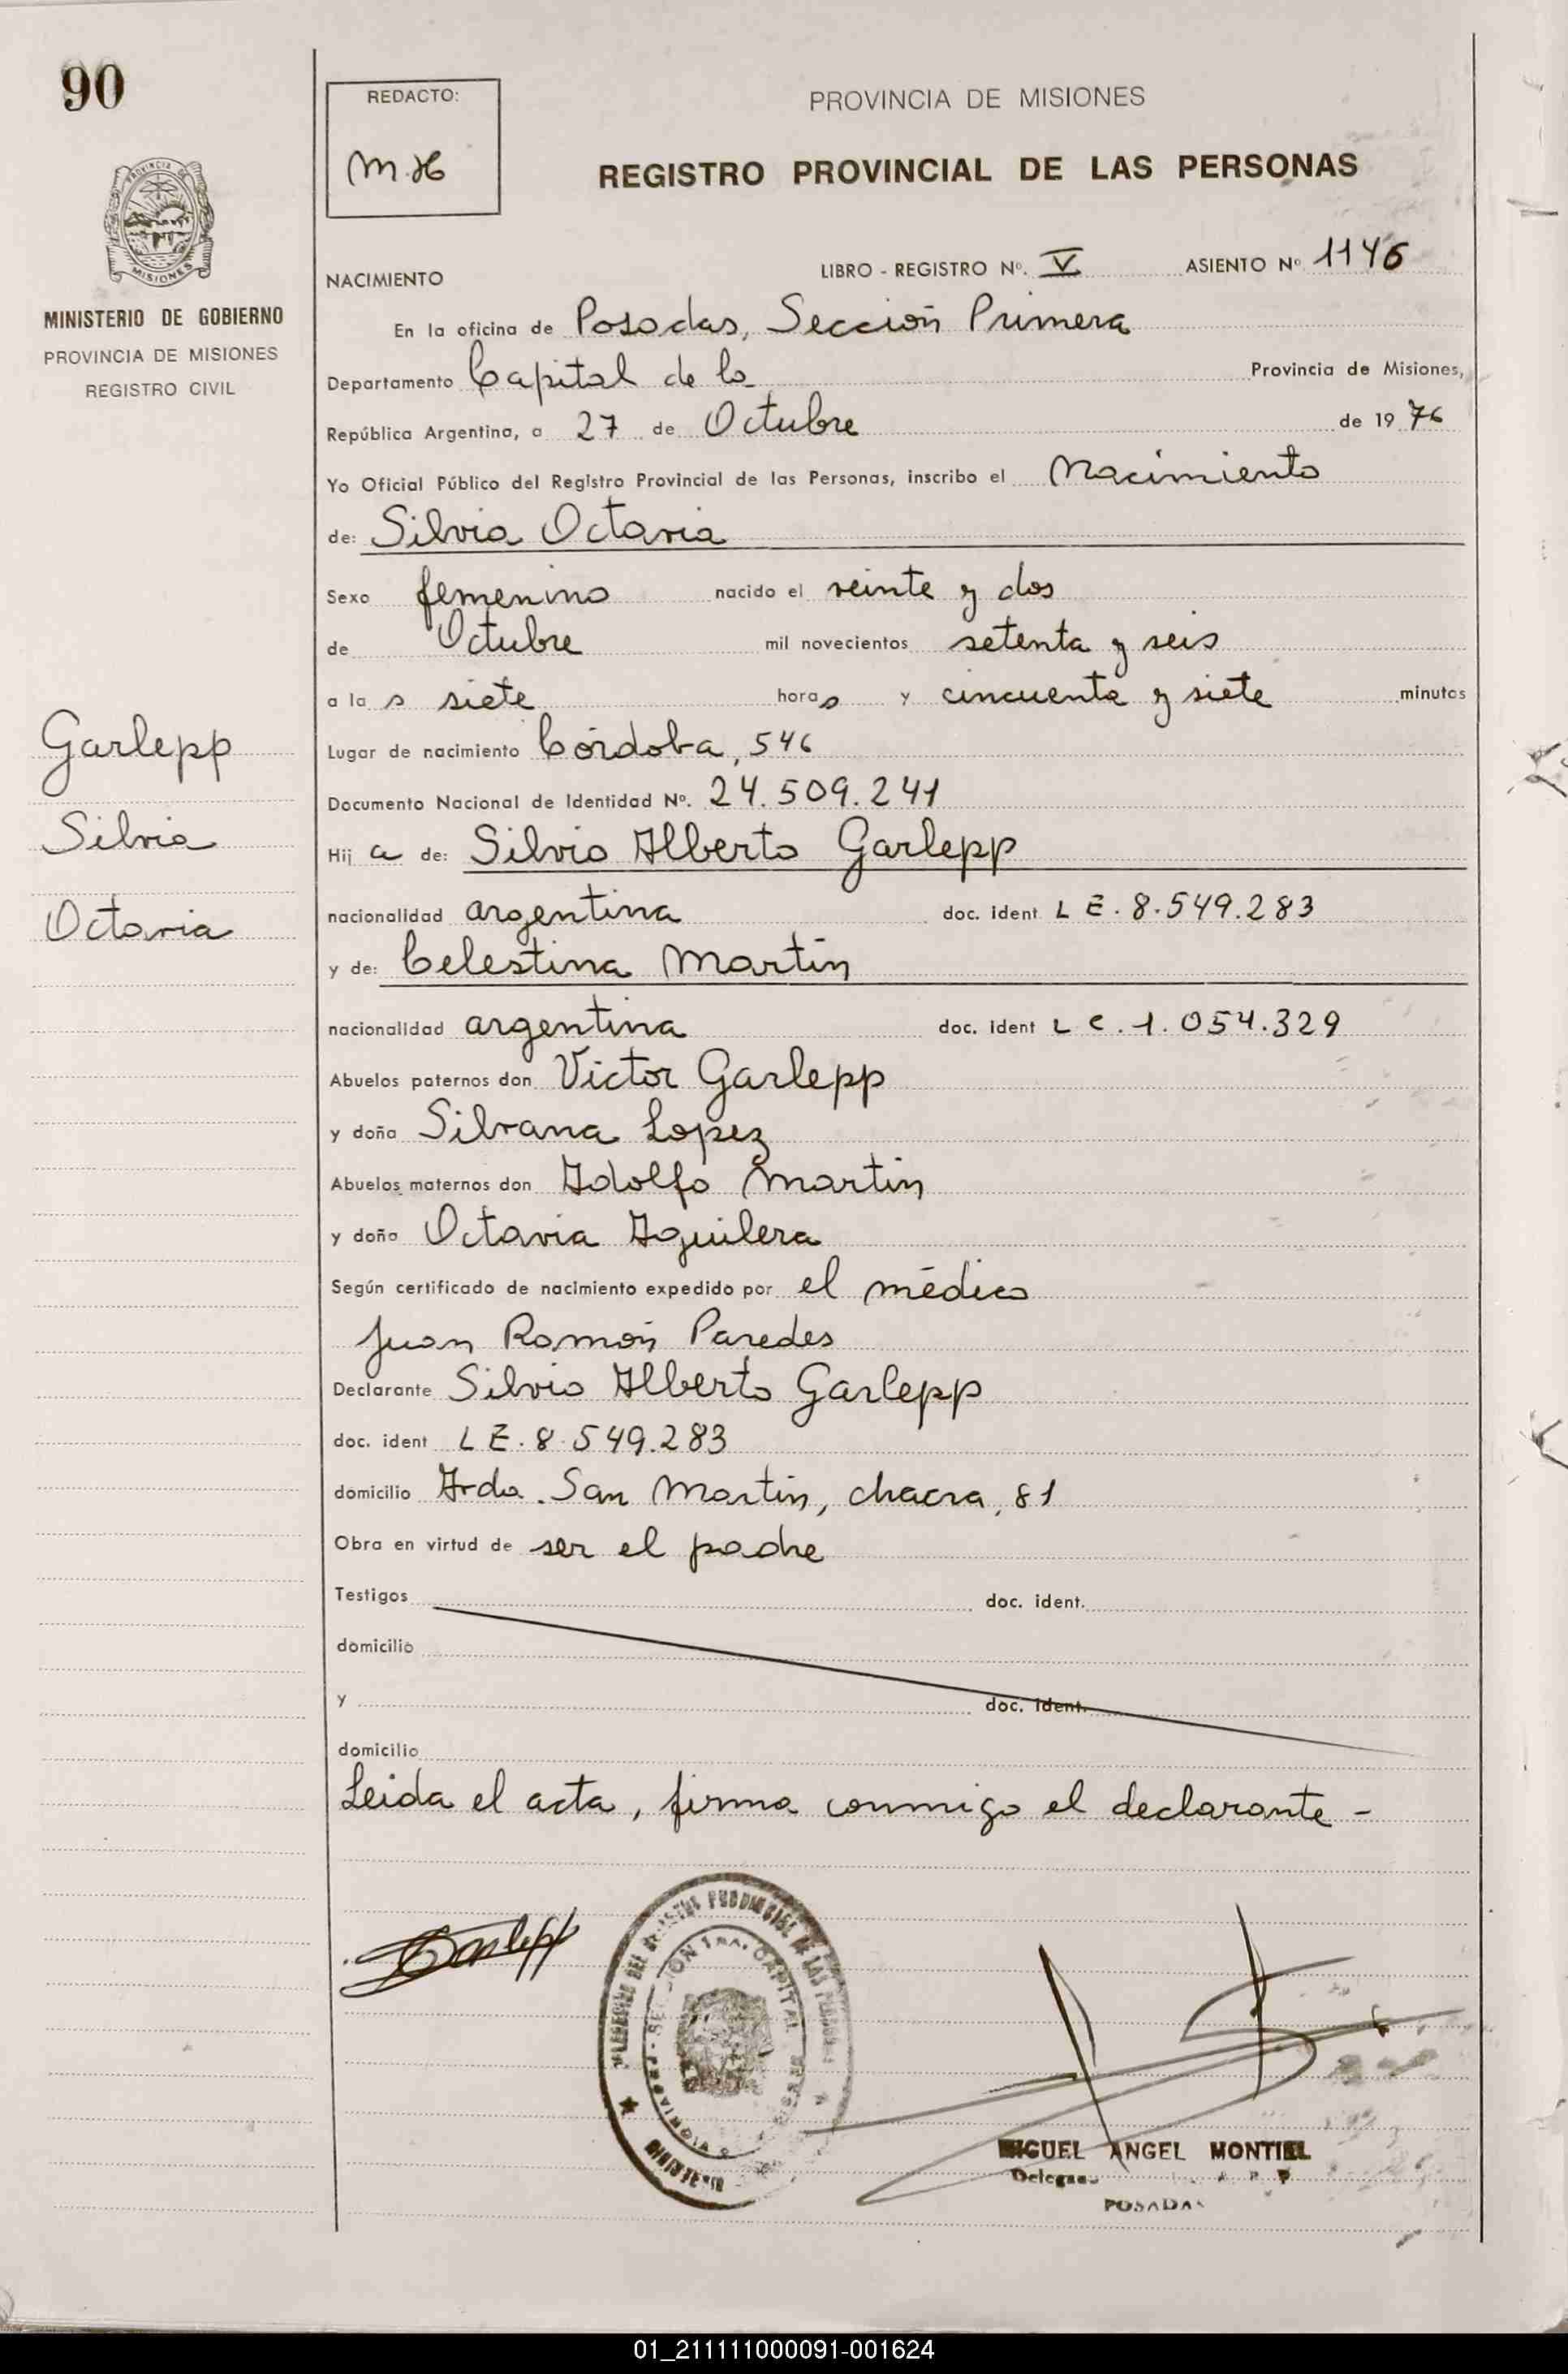 90
PROVINCIA DE MISIONES
MINISTERIO DE GOBIERNO
PROVINCIA DE MISIONES
REGISTRO CIVIL
Garlepp
Silvia
Octavia
REDACTO:
M.H
PROVINCIA DE MISIONES
REGISTRO PROVINCIAL DE LAS PERSONAS
NACIMIENTO LIBRO - REGISTRO Nº. V ASIENTO Nº 1146
En la oficina de Posadas, Sección Primera
Departamento Capital de la Provincia de Misiones,
República Argentina, a 27 de Octubre de 1976
Yo Oficial Público del Registro Provincial de las Personas, inscribo el Nacimiento
de: Silvia Octavia
Sexo femenino nacido el veinte y dos
de Octubre mil novecientos setenta y seis
a la s siete horas y cincuenta y siete minutos
Lugar de nacimiento Córdoba, 546
Documento Nacional de Identidad Nº. 24.509.241
Hij a de: Silvio Alberto Garlepp
nacionalidad argentina doc. ident L E. 8.549.283
y de: Celestina Martín
nacionalidad argentina doc. ident L C. 1.054.329
Abuelos paternos don Victor Garlepp
y doña Silvana Lopez
Abuelos maternos don Adolfo Martin
y doña Octavia Aguilera
Según certificado de nacimiento expedido por el médico
Juan Ramón Paredes
Declarante Silvio Alberto Garlepp
doc. ident L E. 8.549.283
domicilio Avda. San Martín, chacra, 81
Obra en virtud de ser el padre
Testigos doc. ident.
domicilio
y doc. ident.
domicilio
Leida el acta, firma conmigo el declarante -
Garlepp
MIGUEL ANGEL MONTIEL
POSADAS
01_211111000091-001624